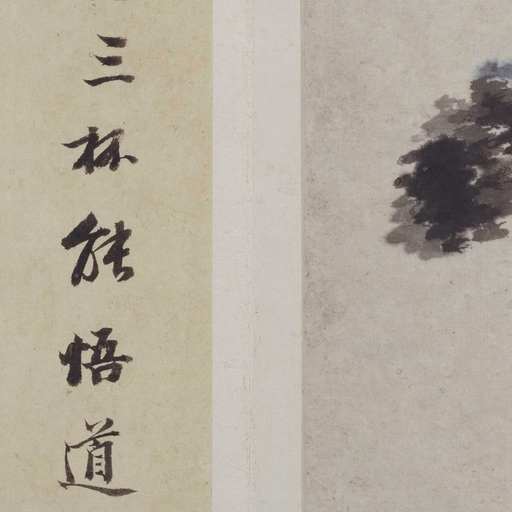 三杯能悟道